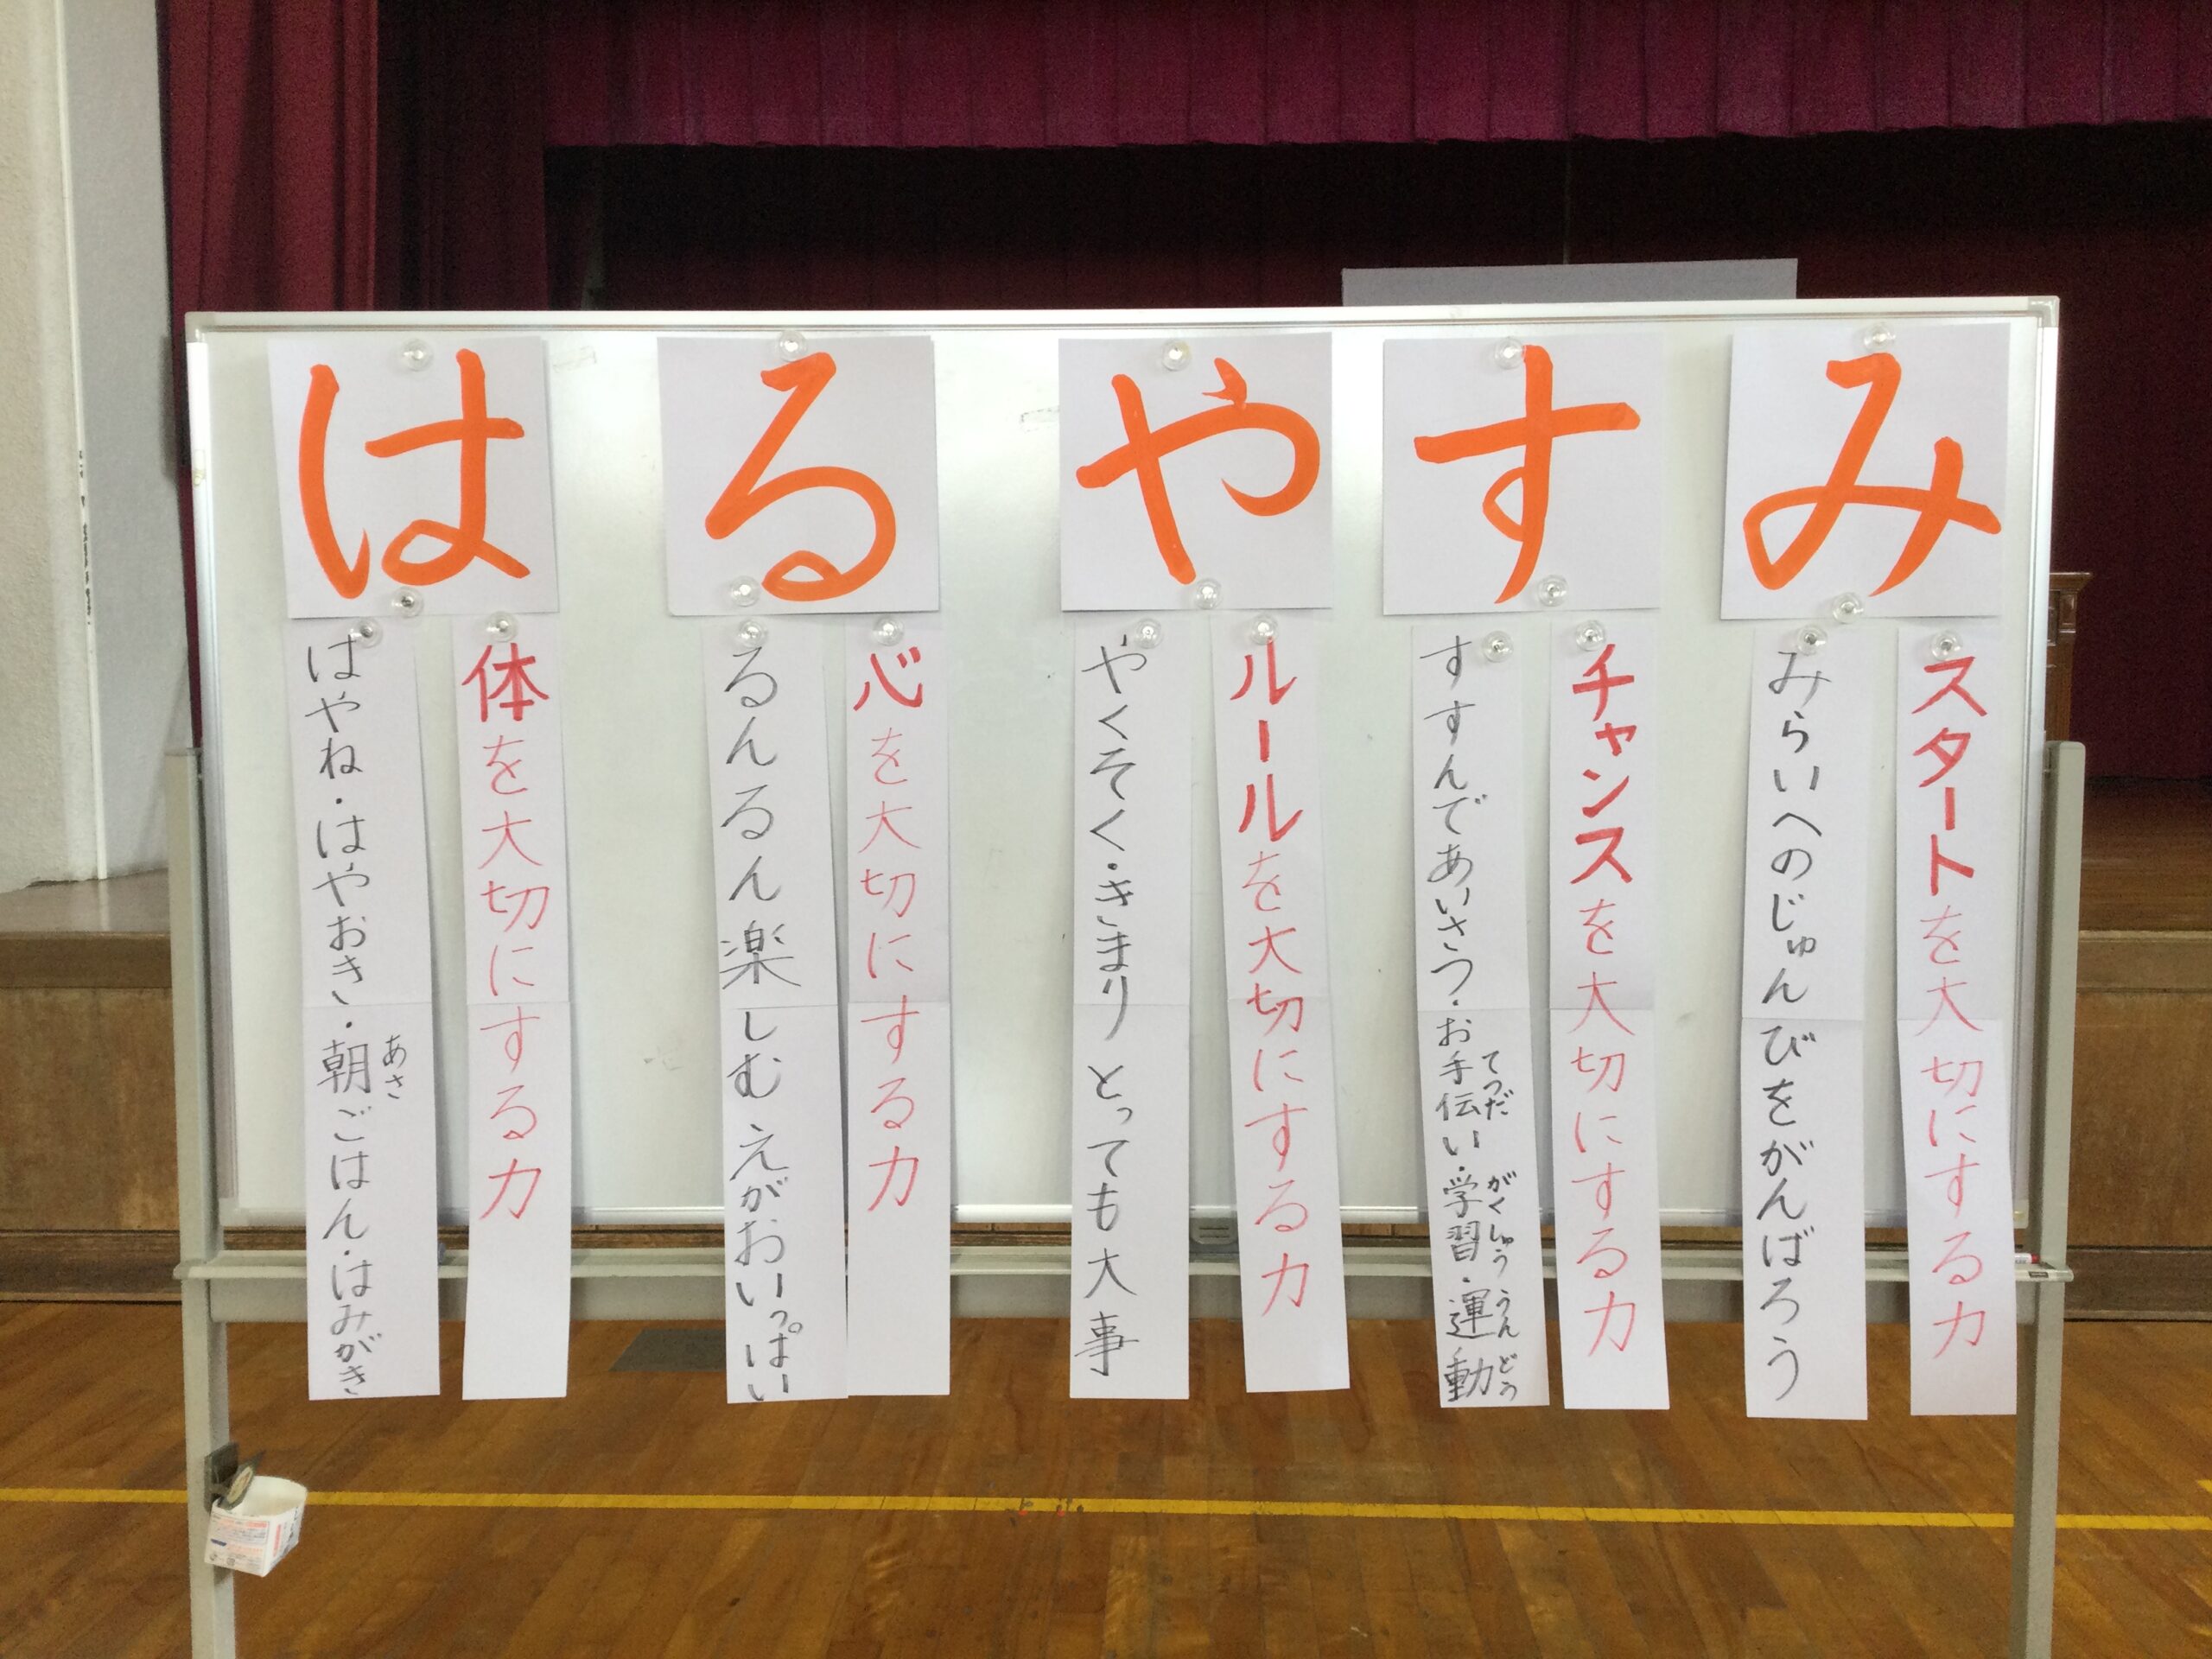 はるやすみ
はやね・はやおき・朝ごはん・はみがき
あさ
体を大切にする力
るんるん楽しむ えがおいっぱい
心を大切にする力
やくそく・きまり とっても大事
ルールを大切にする力
すすんであいさつ・お手伝い・学習・運動
てつだ がくしゅう うんどう
チャンスを大切にする力
みらいへのじゅんびをがんばろう
スタートを大切にする力